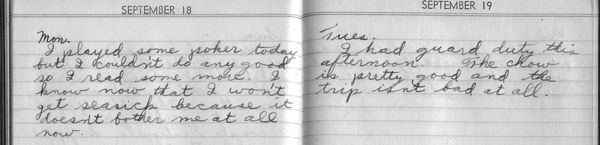 SEPTEMBER 18
Mon.
I played some poker today
but I couldn't do any good
so I read some more. I
know now that I won't
get seasick because it
doesn't bother me at all
now.
SEPTEMBER 19
Tues.
I had guard duty this
afternoon. The chow
is pretty good and the
trip isn't bad at all.